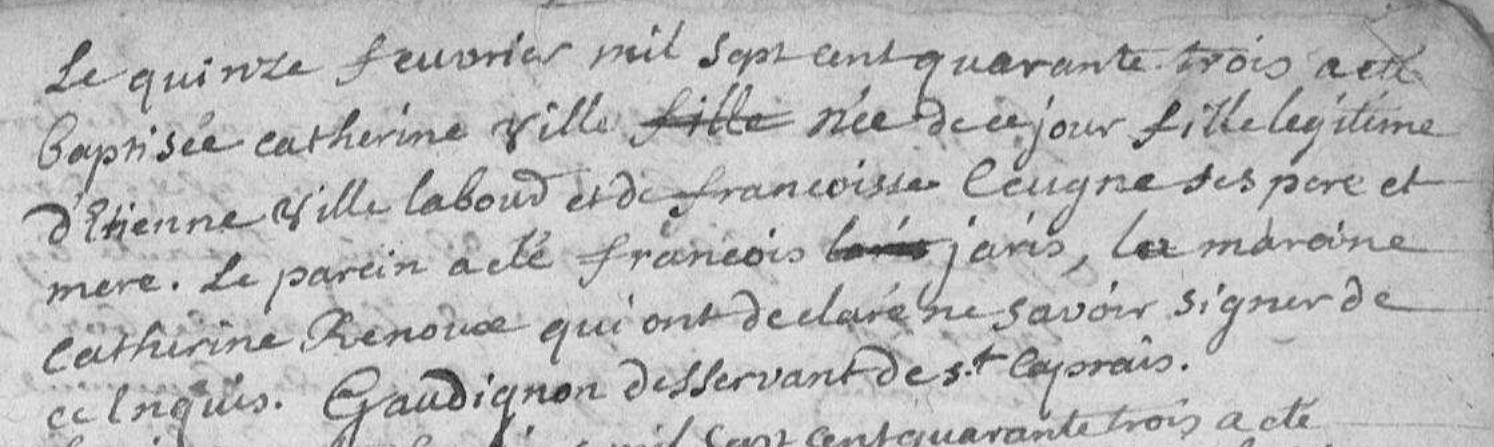 Le quinze feuvrier mil sept cent quarante trois a eté
baptisée catherine ville fille née de ce jour fille legitime
d'Etienne ville laboud et de francoisse Ceugne ses pere et
mere. Le parein a eté francois jaris, la maraine
catherine Renoux qui ont declaré ne savoir signer de
ce Inquis. Gaudignon desservant de s.t Caprais.
mil sept cent quarante trois a eté